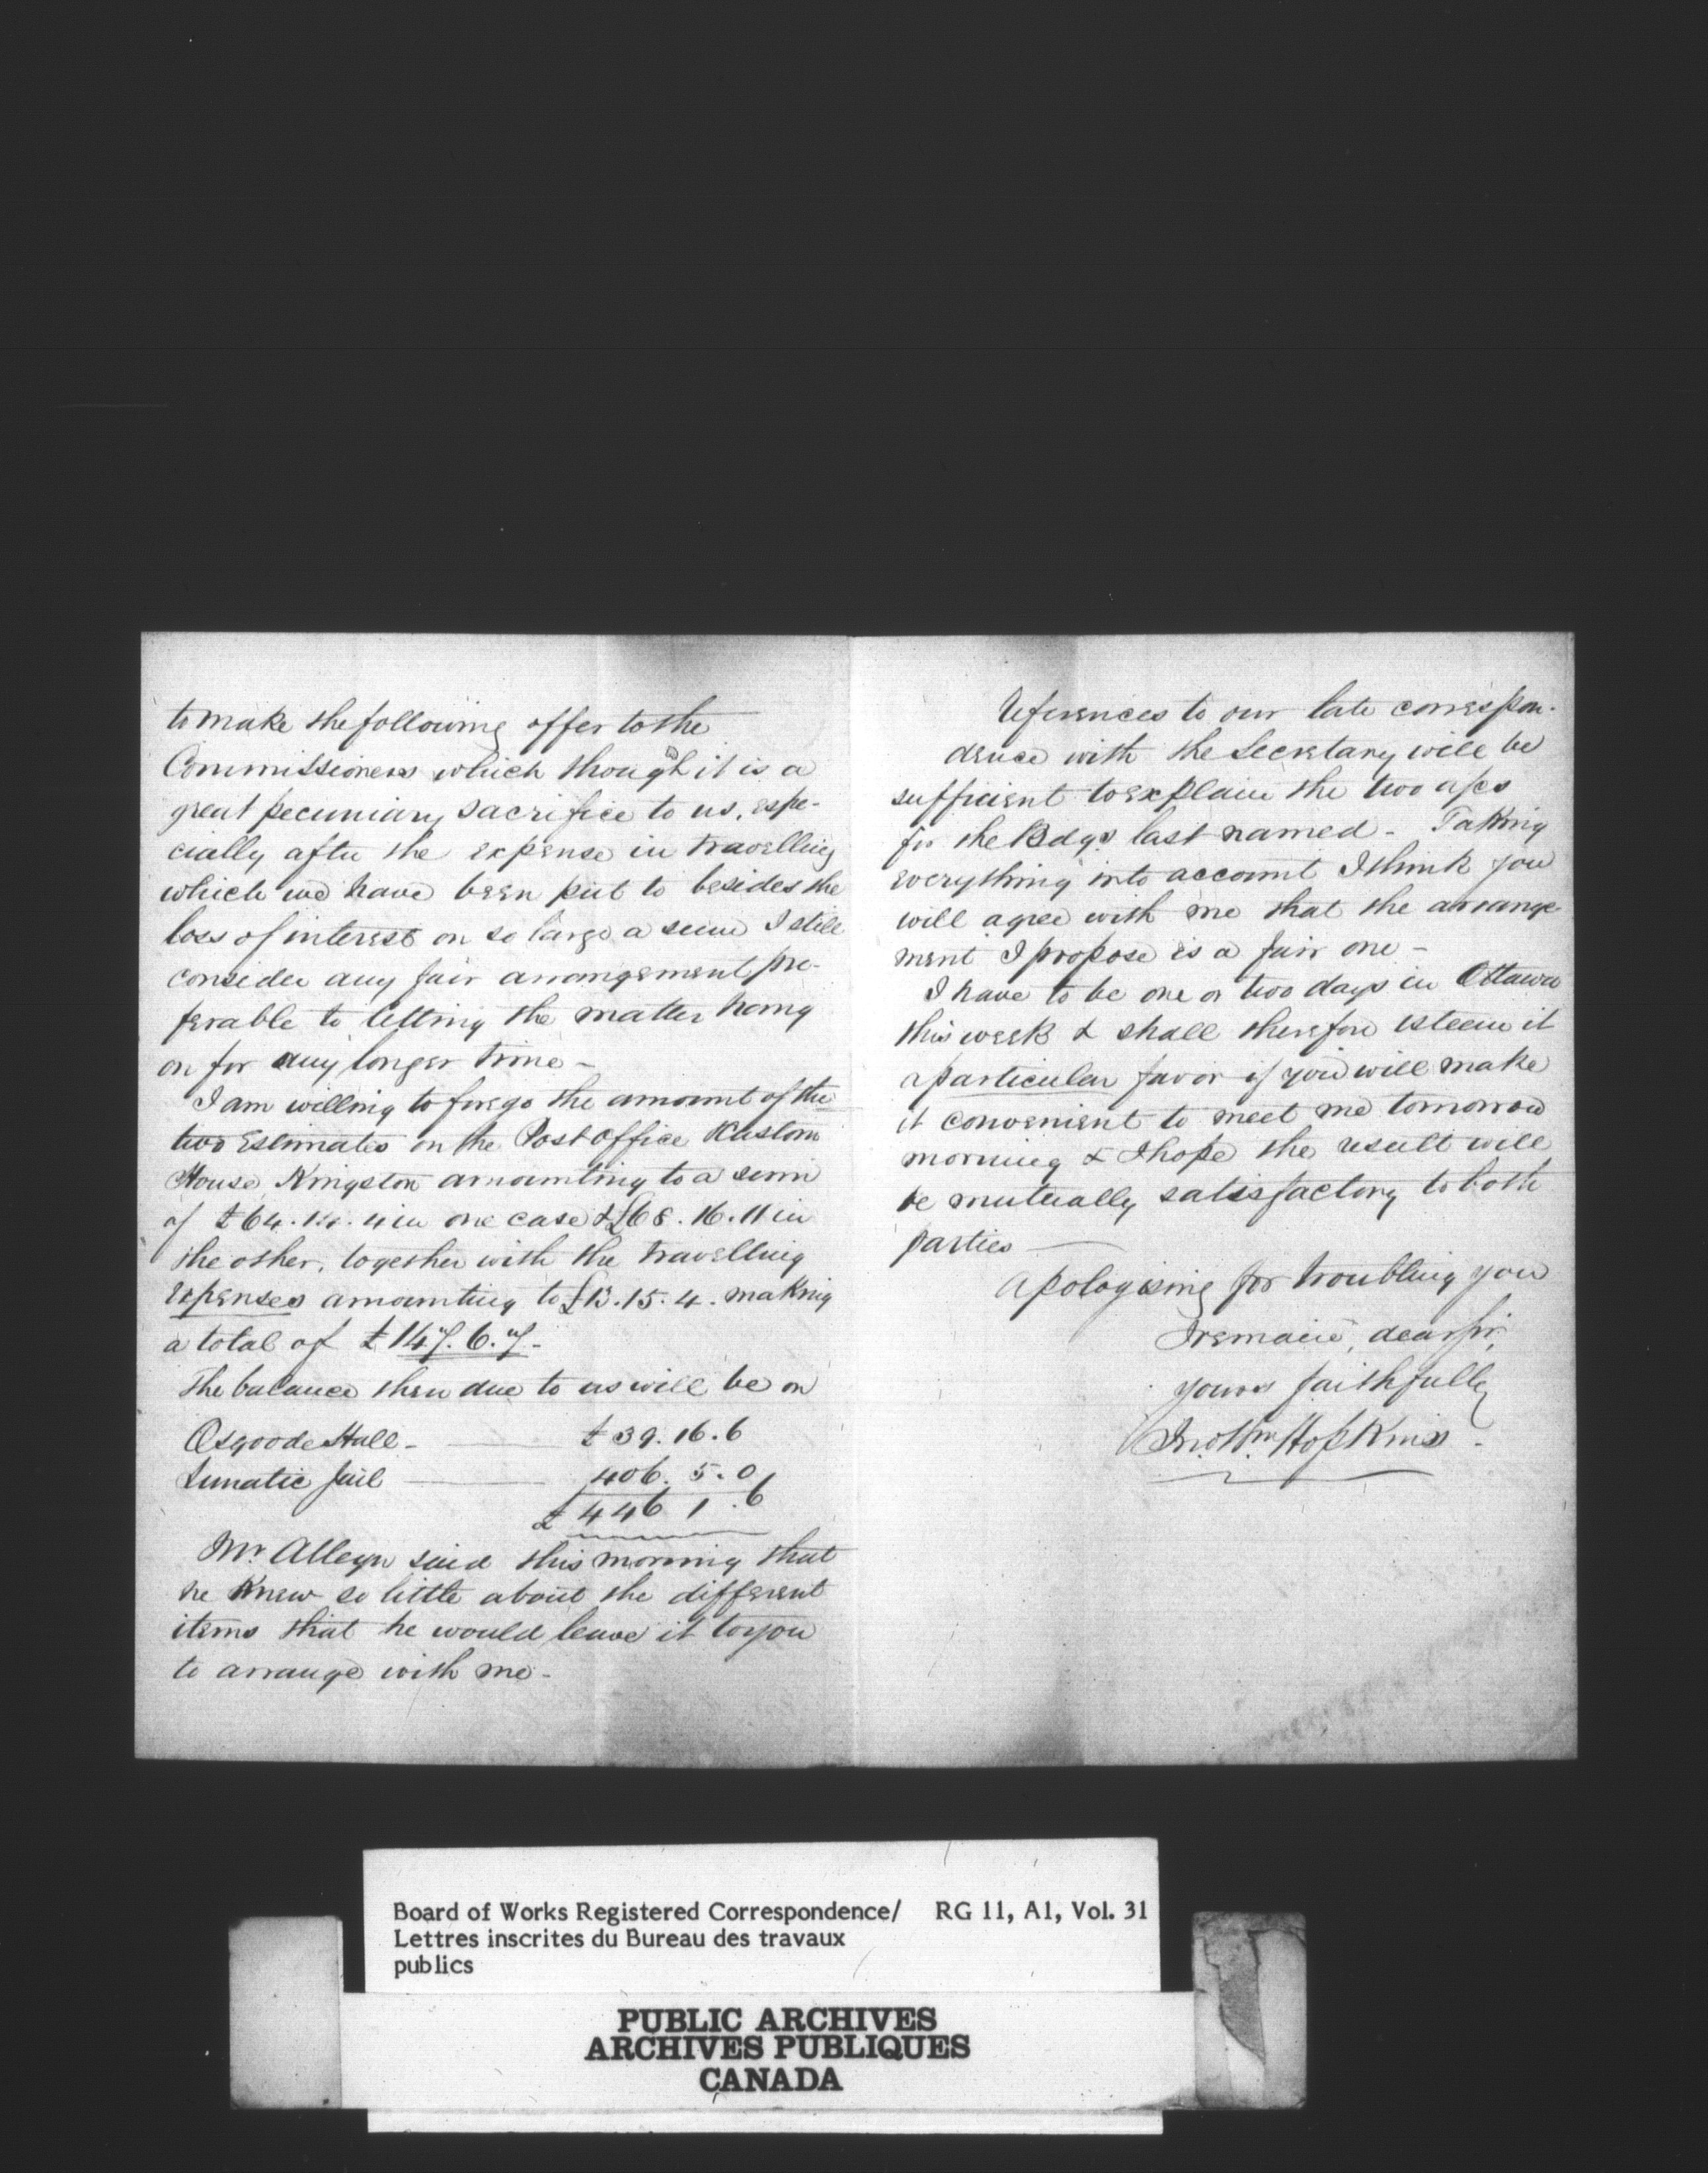 to make the following offer to the
Commissioners which though it is a
great pecuniary sacrifice to us, espe-
cially after the expense in travelling
which we have been put to besides the
loss of interest on so large a sum I still
consider any fair arrangement pre-
ferable to letting the matter hang
on for any longer time -
I am willing to forego the amount of the
two Estimates on the Post Office & Custom
House Kingston amounting to a sum
of £64. in one case & £68. 16. 11 in
the other, together with the travelling
expenses amounting to £13. 15. 4. making
a total of £147. 6. 7 -
The balance then due to us will be on
Osgoode Hall - £39. 16. 6
Lunatic Jail 406. 5. 0
£446 1. 6
Mr Alleyn said this morning that
he knew so little about the different
items that he would leave it to you
to arrange with me -
References to our late correspon-
dence with the Secretary will be
sufficient to explain the two a/cs
for the Bdgs last named - Taking
everything into account I think you
will agree with me that the arrange
ment I propose is a fair one -
I have to be one or two days in Ottawa
this week & shall therefore esteem it
a particular favor if you will make
it convenient to meet me tomorrow
morning & I hope the result will
be mutually satisfactory to both
parties
Apologising for troubling you
I remain, dear sir,
yours faithfully
Jno Wm Hopkins -
Board of Works Registered Correspondence/ RG 11, A1, Vol. 31
Lettres inscrites du Bureau des travaux
publics
PUBLIC ARCHIVES
ARCHIVES PUBLIQUES
CANADA